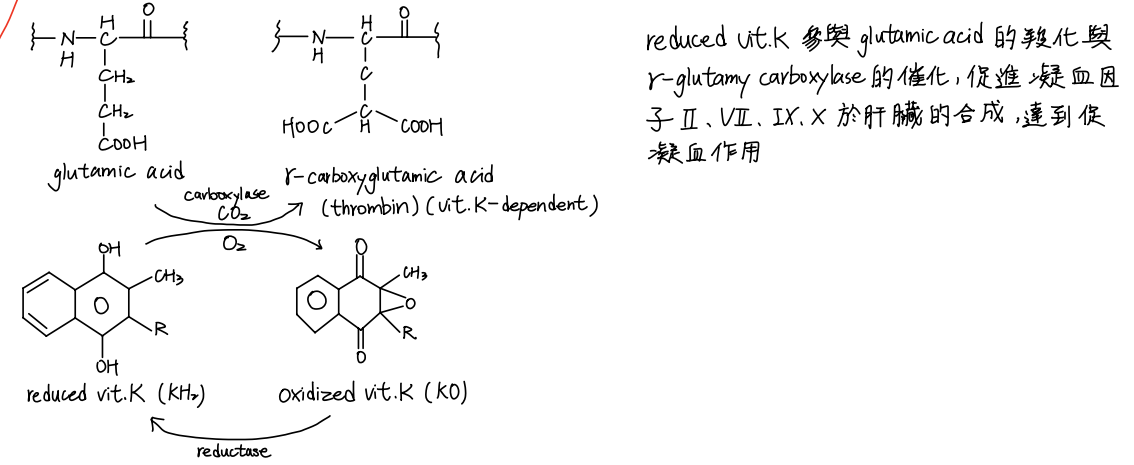 H
O
N
C
H
CH₂
CH₂
COOH
glutamic acid
H
O
N
C
H
C
HOOC
C
H
COOH
r-carboxyglutamic acid
(thrombin) (vit.K-dependent)
carboxylase
CO₂
O₂
OH
CH₃
R
OH
reduced vit.K (KH₂)
O
CH₃
O
R
O
oxidized vit.K (KO)
reductase
reduced vit.K 參與 glutamic acid 的羧化與
r-glutamy carboxylase 的催化，促進凝血因
子 II、VII、IX、X 於肝臟的合成，達到促
凝血作用